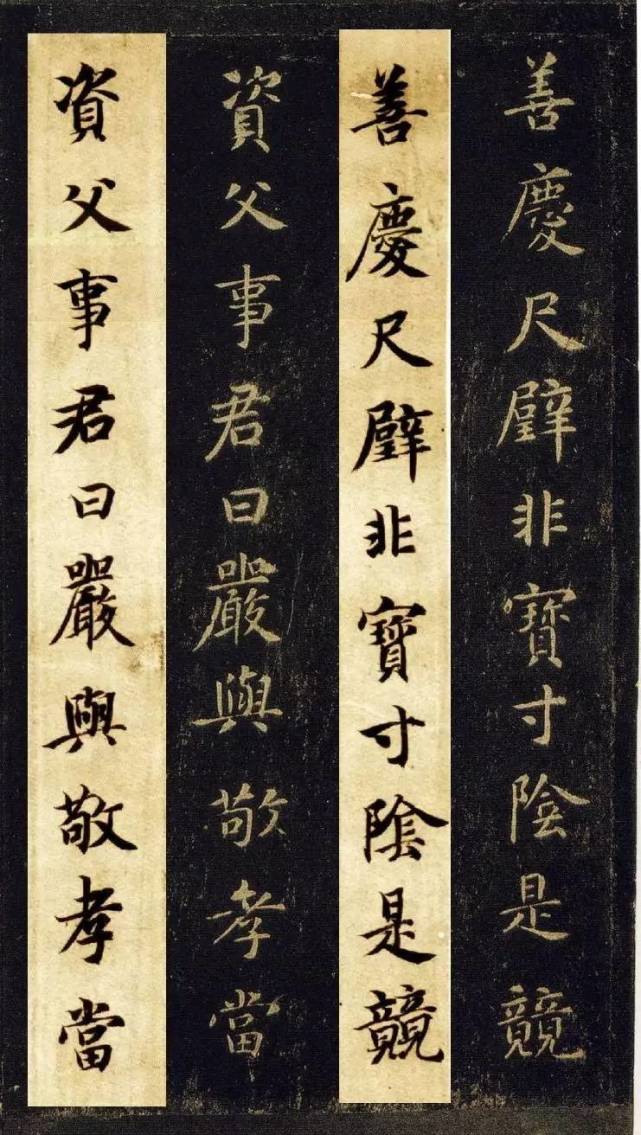 善慶尺璧非寶寸陰是競
善慶尺璧非寶寸陰是競
資父事君曰嚴與敬孝當
資父事君曰嚴與敬孝當